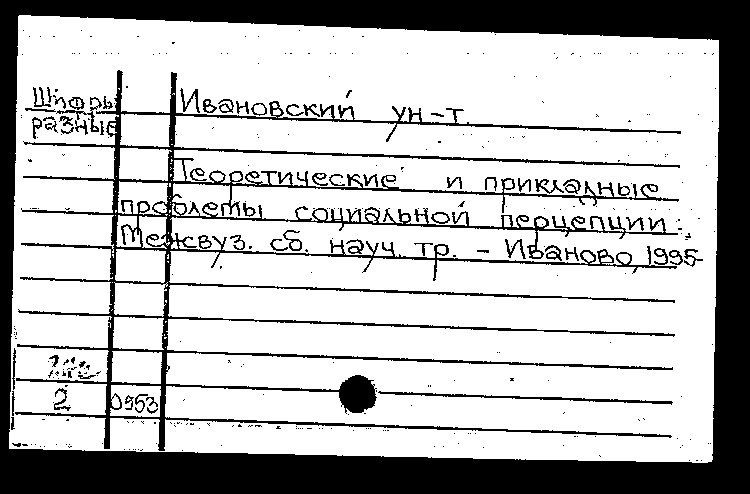 Шифры
разные
Ивановский ун-т.
Теоретические и прикладные
проблемы социальной перцепции:
Межвуз. сб. науч. тр. - Иваново, 1995-
2 0953